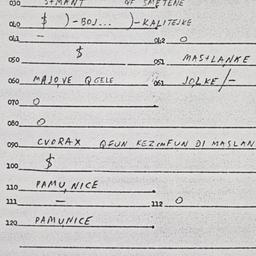 030 S+MANT QF SMETENE
040 $ )-BOJ... )-KALITEJKE
041 - 042 O
050 $ 051 MAS+LANKE
060 MAJO,VE QCELE 061 JO,LKE/-
070 O
080 O
090 CVORAX QFUN KEZMFUN DI MASLAN
100 $
110 PAMU,NICE
111 - 112 O
120 PAMUNICE